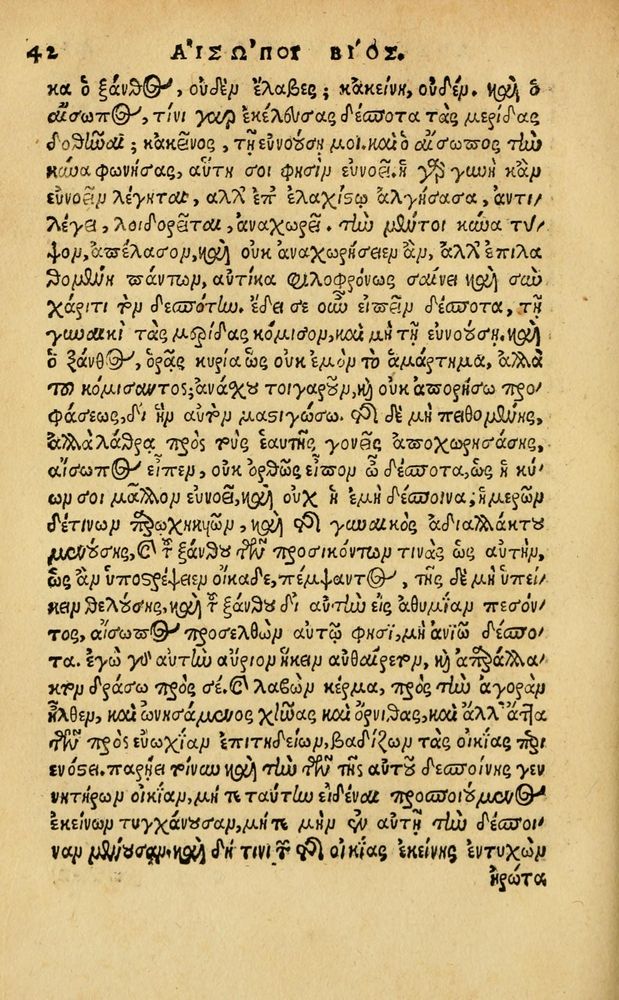 42 ΑἸΣΩΠΟΥ ΒΙΟΣ.
κα ὁ ξάνθος, ουδὲν ἔλαβες; κακείνη, ουδέν. καὶ ὁ
αἴσωπος, τίνι γαρ εκέλευσας δέσποτα τὰς μερίδας
δοθῆναι; κακεῖνος, τῇ ευνούση μοι. καὶ ὁ αἴσωπος τὴν
κύνα φωνήσας, αὕτη σοι φησὶν ευνοεῖ. ἡ γὰρ γυνὴ κὰν
ευνοεῖν λέγηται, αλλ' επ' ελαχίστῳ αλγήσασα, αντι
λέγει, λοιδορεῖται, αναχωρεῖ. τὴν μέντοι κύνα τύ/
ψον, απέλασον, καὶ ουκ αναχωρήσειεν ἂν, αλλ' επιλα
θομένη πάντων, αυτίκα φιλοφρόνως σαίνει καὶ σὺν
χάριτι τὸν δεσπότην. έδει σε οὖν ειπεῖν δέσποτα, τῇ
γυναικὶ τὰς μερίδας κόμισον, καὶ μὴ τῇ ευνούση. καὶ
ὁ ξάνθος, ὁρᾷς κυρία ὡς ουκ εμὸν τὸ ἁμάρτημα, αλλὰ
τοῦ κόμισαντος; ανάχου τοιγαροῦν, καὶ ουκ απορήσω προ/
φάσεως, δι ἣν αυτὸν μαστιγώσω. τῆς δὲ μὴ πειθομένης,
αλλὰ λάθρα πρὸς τοὺς ἑαυτῆς γονεῖς αποχωρησάσης,
αἴσωπος εἶπεν, ουκ ορθῶς εἶπον ὦ δέσποτα, ὡς ἡ κύ/
ων σοι μᾶλλον ευνοεῖ, καὶ ουχ ἡ εμὴ δέσποινα; ἡμερῶν
δέ τινων παρῳχηκυιῶν, καὶ τῆς γυναικὸς αδιαλλάκτου
μενούσης, καὶ τοῦ ξάνθου τῶν προσικόντων τινὰς ὡς αυτὴν,
ὡς ἂν ὑποστρέψειεν οἴκαδε, πέμψαντος, τῆς δὲ μὴ υπεί/
κειν θελούσης, καὶ τοῦ ξάνθου δι αυτὴν εις αθυμίαν πεσόν/
τος, αἴσωπος προσελθὼν αυτῷ φησὶ, μὴ ανιῶ δέσπο/
τα. εγὼ γὰρ αυτὴν αύριον ἥκειν αυθαίρετον, καὶ απαράλλα/
κτον δράσω πρὸς σέ. καὶ λαβὼν κέρμα, πρὸς τὴν αγορὰν
ἦλθεν, καὶ ωνησάμενος χῆνας καὶ όρνιθας, καὶ άλλ' άττα
τῶν πρὸς ευωχίαν επιτηδείων, βαδίζων τὰς οικίας περι
ενόστει. παρῄει τοίνυν καὶ τὴν τῶν τῆς αυτοῦ δεσποίνης γεν
νητόρων οικίαν, μή τε ταύτην ειδέναι προσποιούμενος
εκείνων τυγχάνουσαν, μή τε μὴν εν αυτῇ τὴν δέσποι/
ναν μένουσαν. καὶ δή τινι τῶν τῆς οικίας εκείνης εντυχὼν
ηρώτα